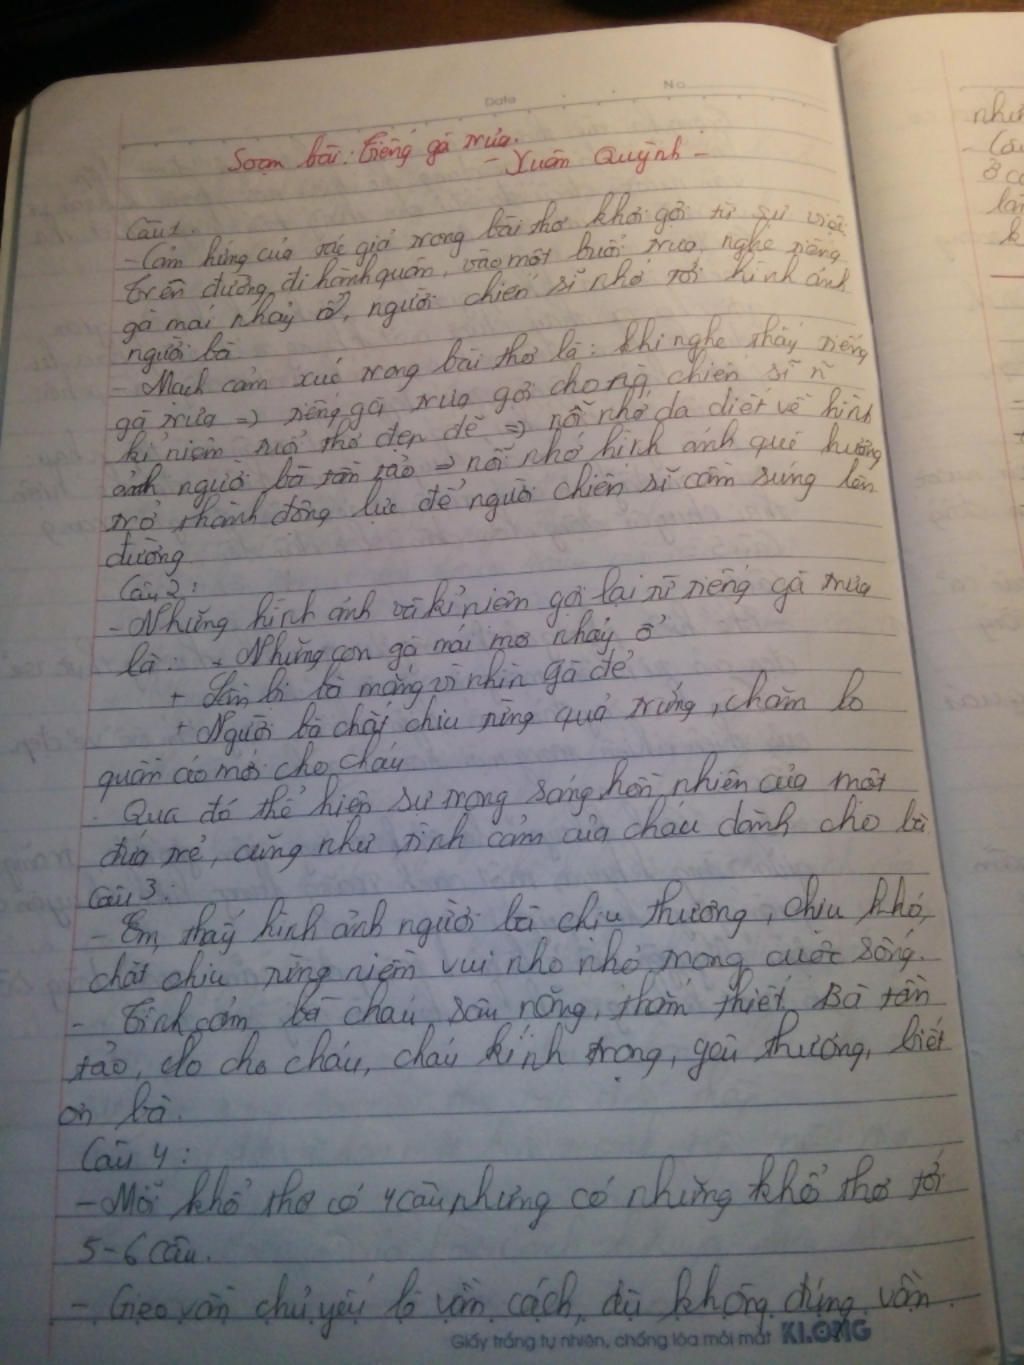 Date No
Soạn bài: Tiếng gà trưa.
- Xuân Quỳnh -
Câu 1.
- Cảm hứng của tác giả trong bài thơ khơi gợi từ sự việc
trên đường đi hành quân, vào một buổi trưa nghe tiếng
gà mái nhảy ổ, người chiến sĩ nhớ tới hình ảnh
người bà
- Mạch cảm xúc trong bài thơ là: khi nghe thấy tiếng
gà trưa => tiếng gà trưa gợi cho ng chiến sĩ n~
kỉ niệm tuổi thơ đẹp đẽ => nỗi nhớ da diết về hình
ảnh người bà tần tảo => nỗi nhớ hình ảnh quê hương
trở thành động lực để người chiến sĩ cầm súng lên
đường
Câu 2:
- Những hình ảnh và kỉ niệm gợi lại từ tiếng gà trưa
là: + Những con gà mái mơ nhảy ổ
+ Lần bị bà mắng vì nhìn gà đẻ
+ Người bà chắt chiu từng quả trứng, chăm lo
quần áo mới cho cháu
. Qua đó thể hiện sự trong sáng hồn nhiên của một
đứa trẻ, cũng như tình cảm của cháu dành cho bà
Câu 3:
- Em thấy hình ảnh người bà chịu thương, chịu khó,
chắt chiu từng niềm vui nho nhỏ trong cuộc sống.
- Tình cảm bà cháu sâu nặng, thắm thiết. Bà tần
tảo, lo cho cháu, cháu kính trọng, yêu thương, biết
ơn bà.
Câu 4:
- Mỗi khổ thơ có 4 câu nhưng có những khổ thơ tới
5-6 câu.
- Gieo vần chủ yếu là vần cách, dù không đúng vần
Giấy trắng tự nhiên, chống lóa mỏi mắt KLONG